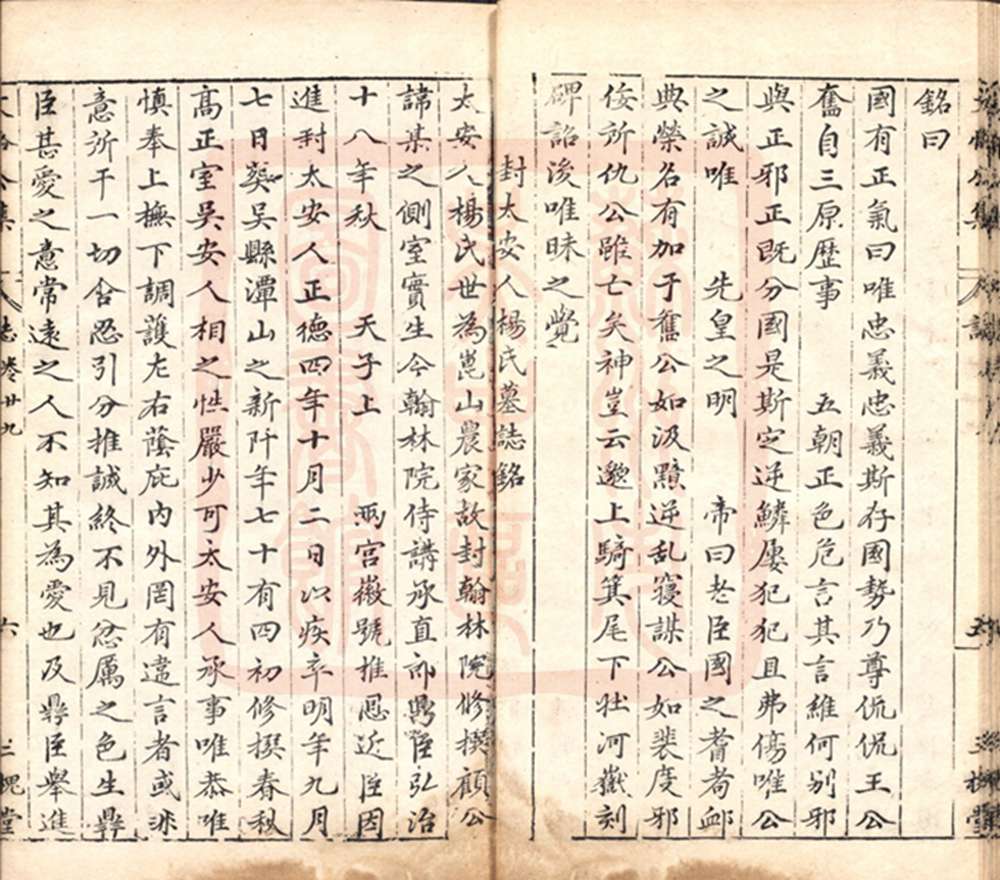 銘曰
國有正氣曰唯忠義忠義斯存國勢乃尊侃侃王公
奮自三原歷事　五朝正色危言其言維何別邪
與正邪正既分國是斯定逆鱗屢犯犯且弗傷唯公
之誠唯　先皇之明　帝曰老臣國之耆耈卹
典榮名有加于舊公如汲黯逆乱寢謀公如裴度邪
佞所仇公雖亡矣神豈云邈上騎箕尾下壯河嶽刻
碑詔後唯昧之覺
封太安人楊氏墓誌銘
太安人楊氏世為崑山農家故封翰林院修撰顧公
諱某之側室實生今翰林院侍講承直郎鼎臣弘治
十八年秋　天子上　兩宮徽號推恩近臣因
進封太安人正德四年十月二日以疾卒明年九月
七日葬吳縣潭山之新阡年七十有四初修撰春秋
高正室吳安人相之性嚴少可太安人承事唯恭唯
慎奉上撫下調護左右蔭庇內外罔有違言者或非
意所干一切含忍引分推誠終不見忿厲之色生鼎
臣甚愛之意常遠之人不知其為愛也及鼎臣舉進
志卷廿九
六
三槐堂